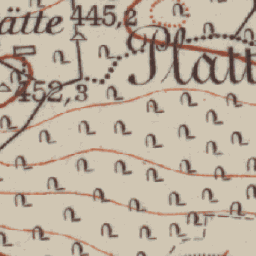 ätte 445,2
Platt
452,3